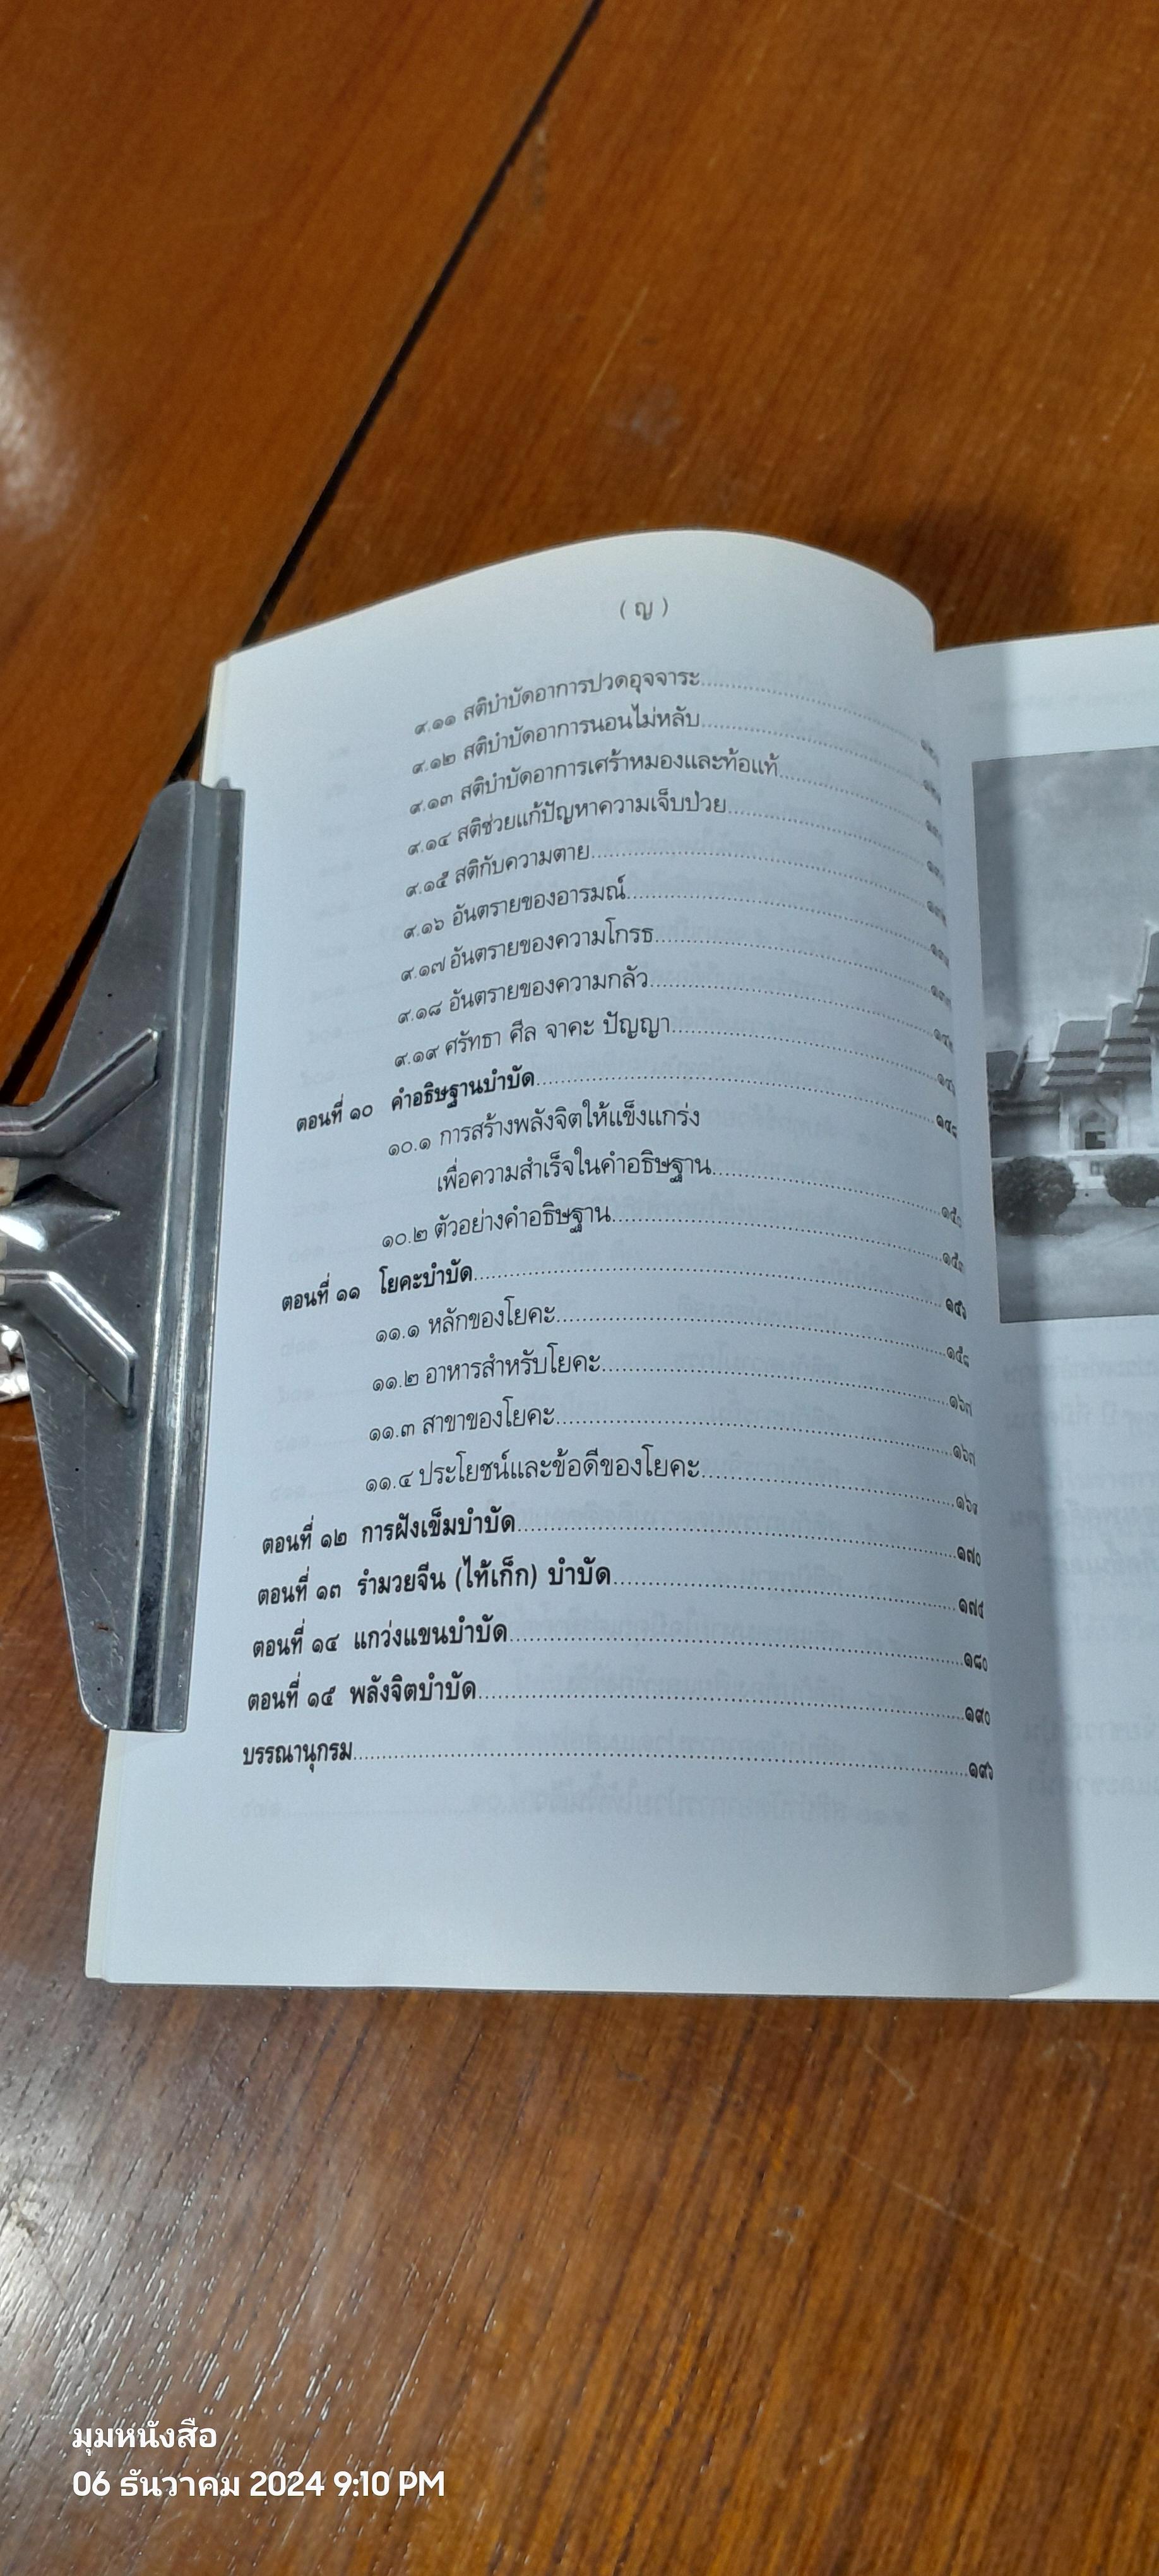 ( ญ )
๙.๑๑ สติบำบัดอาการปวดอุจจาระ
๙.๑๒ สติบำบัดอาการนอนไม่หลับ
๙.๑๓ สติบำบัดอาการเศร้าหมองและท้อแท้
๙.๑๔ สติช่วยแก้ปัญหาความเจ็บป่วย
๙.๑๕ สติกับความตาย
๙.๑๖ อันตรายของอารมณ์
๙.๑๗ อันตรายของความโกรธ
๙.๑๘ อันตรายของความกลัว
๙.๑๙ ศรัทธา ศีล จาคะ ปัญญา
ตอนที่ ๑๐ คำอธิษฐานบำบัด
๑๐.๑ การสร้างพลังจิตให้แข็งแกร่ง
เพื่อความสำเร็จในคำอธิษฐาน
๑๐.๒ ตัวอย่างคำอธิษฐาน
ตอนที่ ๑๑ โยคะบำบัด
๑๑.๑ หลักของโยคะ
๑๑.๒ อาหารสำหรับโยคะ
๑๑.๓ สาขาของโยคะ
๑๑.๔ ประโยชน์และข้อดีของโยคะ
ตอนที่ ๑๒ การฝังเข็มบำบัด ๑๗๐
ตอนที่ ๑๓ รำมวยจีน (ไท้เก็ก) บำบัด
ตอนที่ ๑๔ แกว่งแขนบำบัด ๑๘๐
ตอนที่ ๑๕ พลังจิตบำบัด ๑๙๐
บรรณานุกรม ๑๙๖
มุมหนังสือ
06 ธันวาคม 2024 9:10 PM